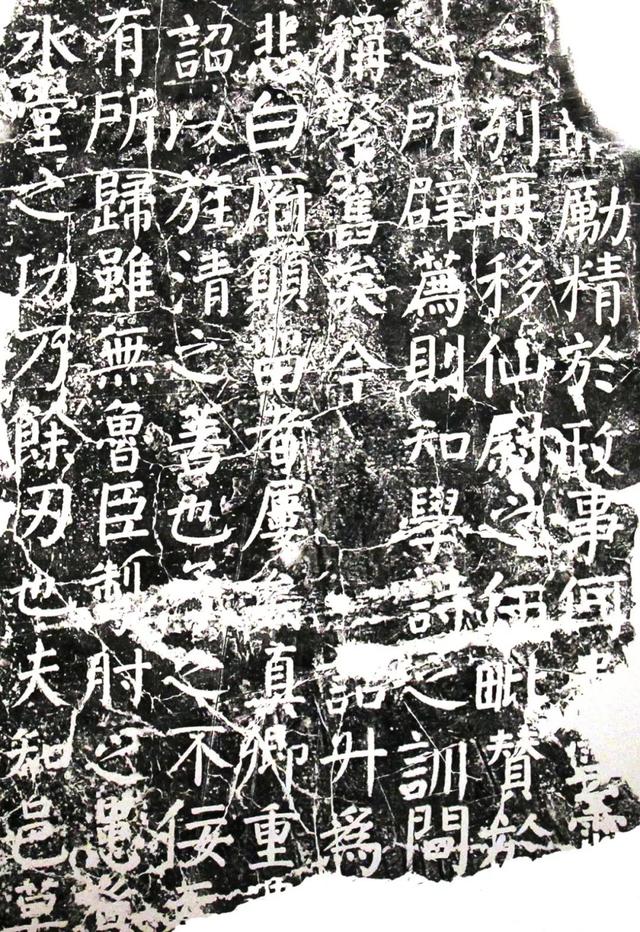 勵精於政事何
之列再移仙尉之任毗贊於
之所辟薦則知學詩之訓間
稱緊舊矣今詔升為
悲白府願留者屢矣真卿重
詔以旌清之善也之不佞
有所歸雖無魯臣掣肘之患
水堂之功乃餘刃也夫知邑莫